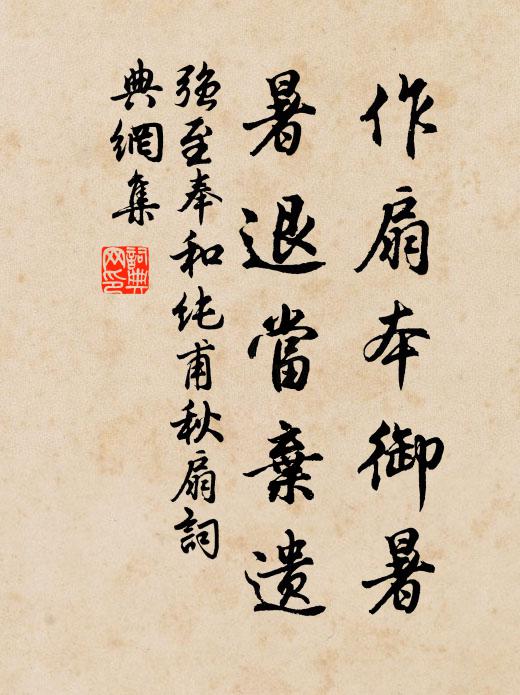 作扇本御暑
暑退當棄遺
强至奉和纯甫秋扇詞
典網集
詞典網印